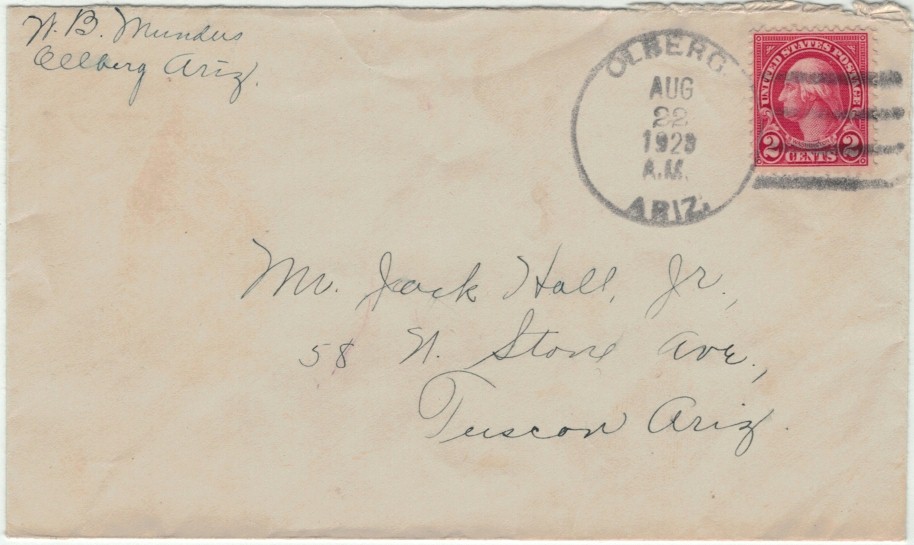 W. B. Mundus
Ollberg Ariz.
OLBERG
AUG
22
1928
A.M.
ARIZ.
UNITED STATES POSTAGE
2 CENTS 2
Mr. Jack Hall, Jr.,
58 N. Stone Ave.,
Tuscon Ariz.